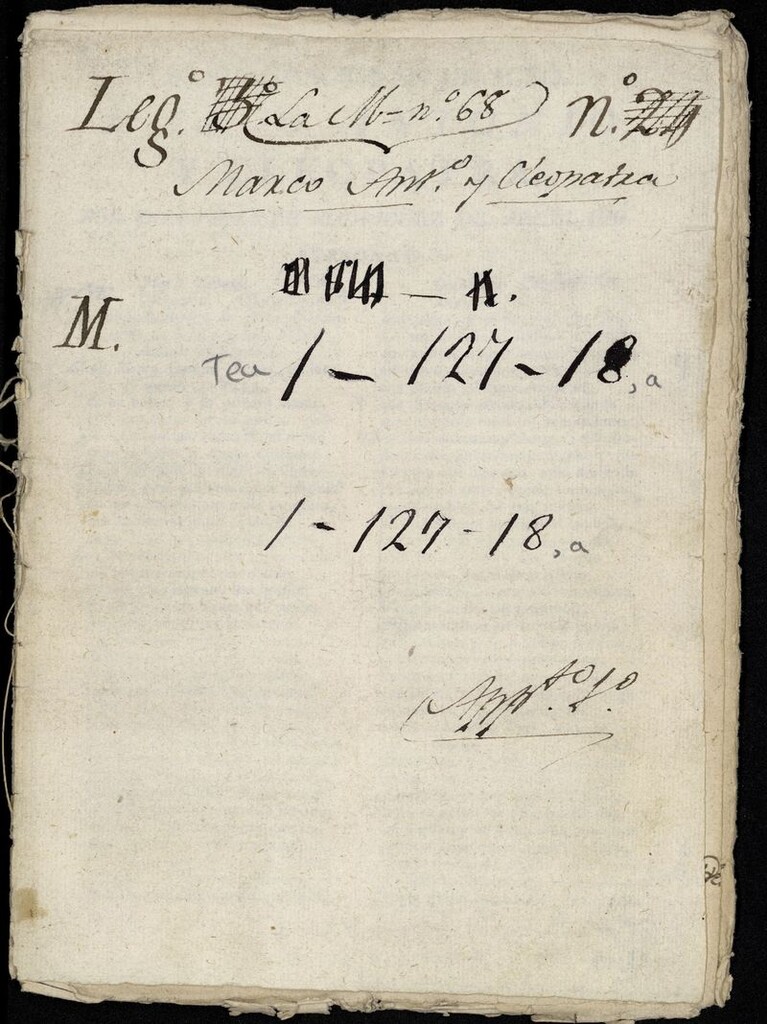 Leg.º La M= nº. 68 nº.
Marco Ant.º y Cleopatra
M.
Tea 1 - 127 - 18, a
1 - 127 - 18, a
App.to 1.º